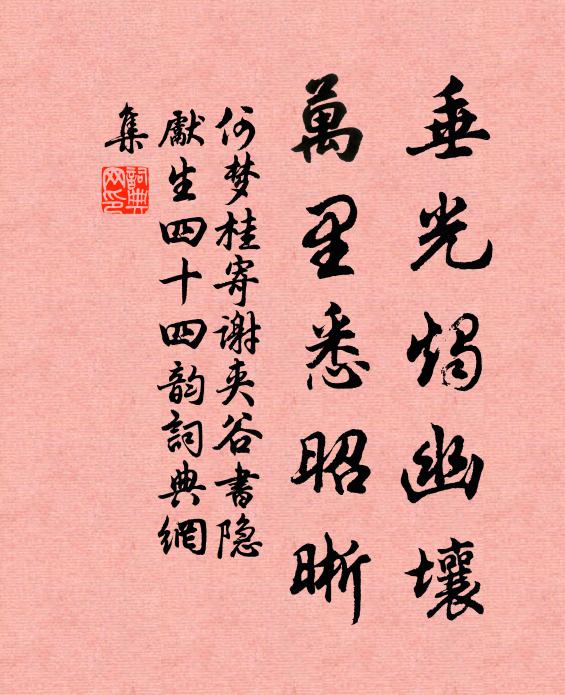 垂光燭幽壤
萬里悉昭晰
何梦桂寄谢夹谷書隐
獻生四十四韵詞典網
集
詞典
网印